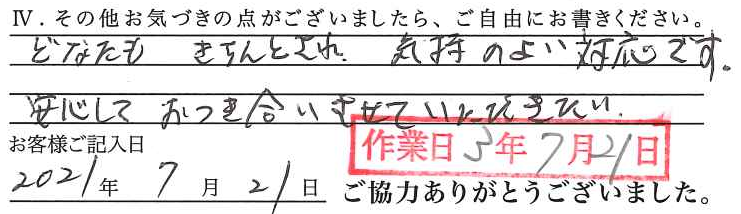 Ⅳ．その他お気づきの点がございましたら、ご自由にお書きください。
どなたも きちんとされ 気持のよい対応です。
安心して おつき合いさせていただきたい。
お客様ご記入日
作業日 3年7月21日
2021年7月21日
ご協力ありがとうございました。